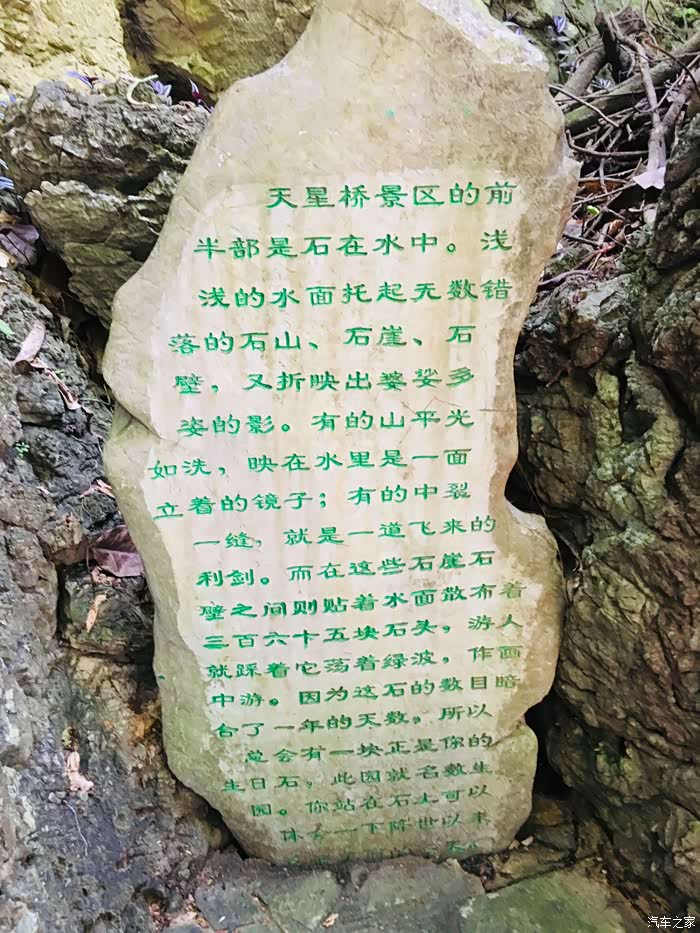 天星桥景区的前
半部是石在水中。浅
浅的水面托起无数错
落的石山、石崖、石
壁，又折映出婆娑多
姿的影。有的山平光
如洗，映在水里是一面
立着的镜子；有的中裂
一缝，就是一道飞来的
利剑。而在这些石崖石
壁之间则贴着水面散布着
三百六十五块石头，游人
就踩着它荡着绿波，作画
中游。因为这石的数目暗
合了一年的天数，所以
总会有一块正是你的
生日石，此园就名数生
园。你站在石上可以
体会一下降世以来
汽车之家